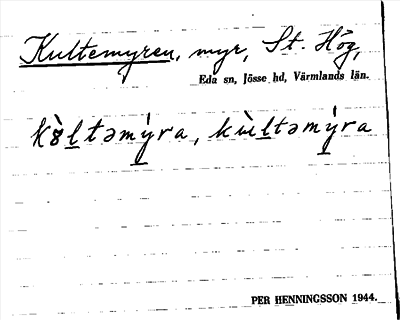 Kultemyren, myr, St. Hög,
Eda sn, Jösse hd, Värmlands län.
kòltəmýra, kùltəmýra
PER HENNINGSSON 1944.